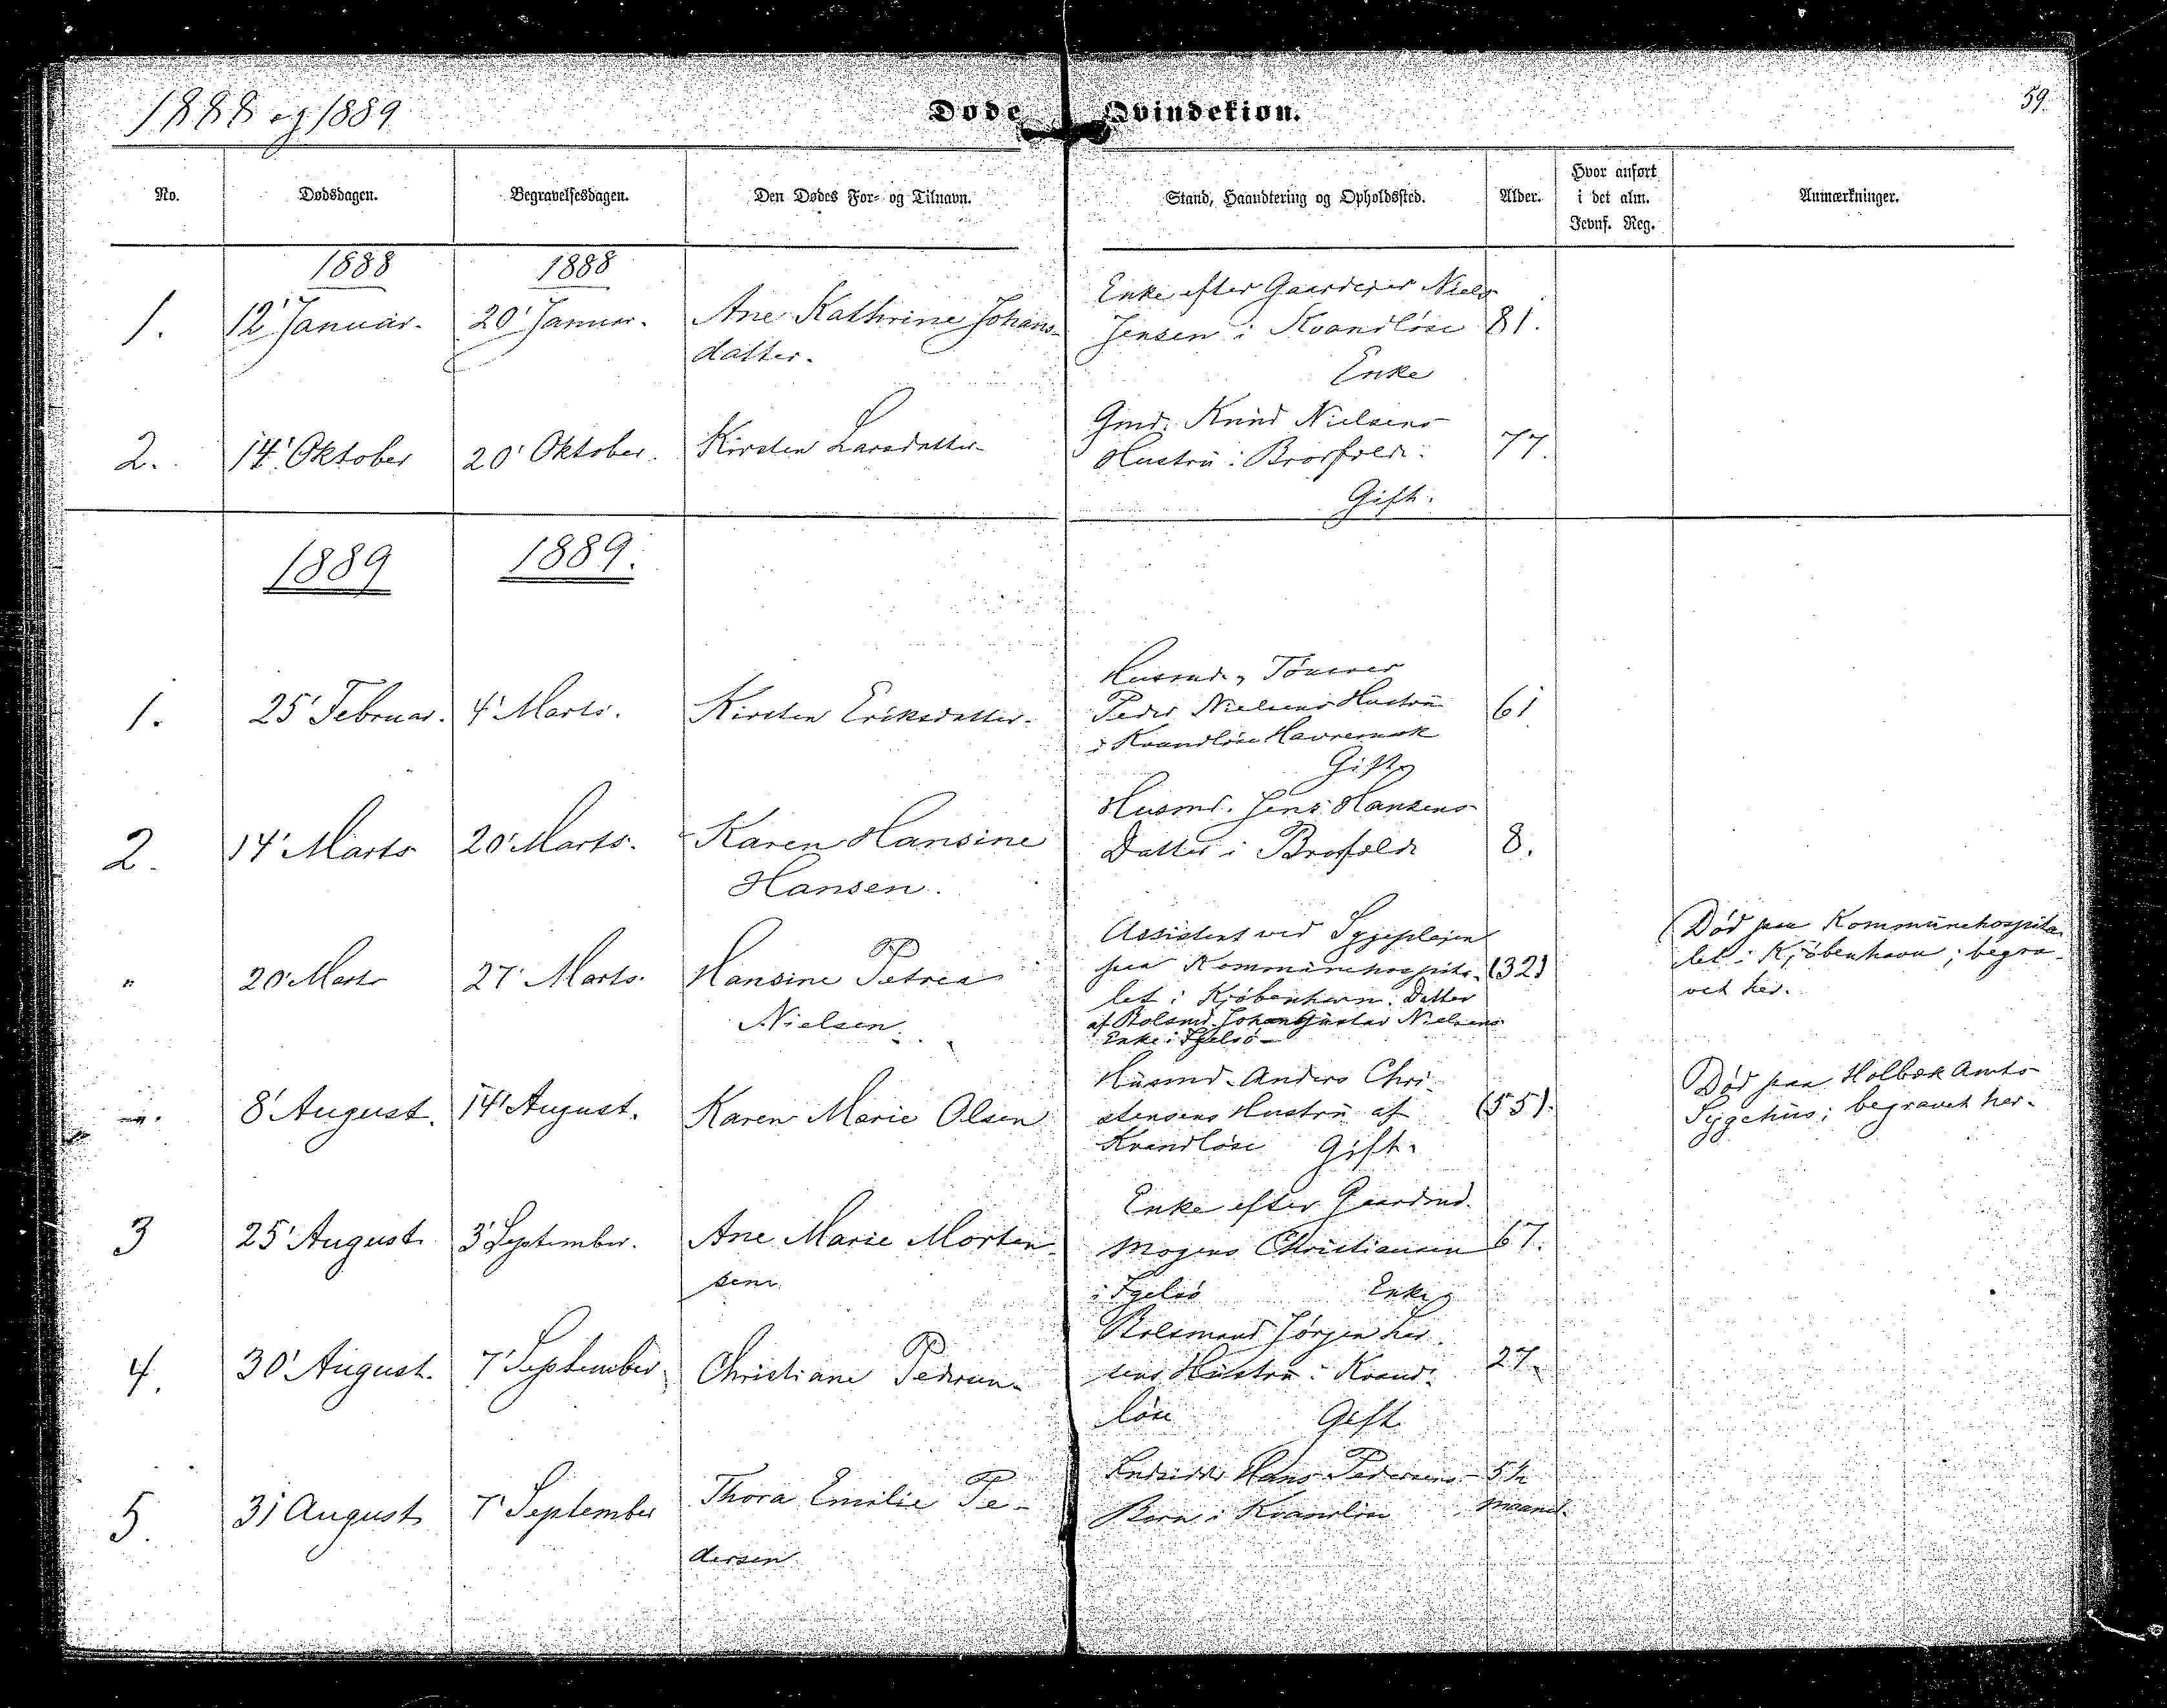 1888 og 1889
Døde Qvindekiøn.
59.
No. Dødsdagen. Begravelsesdagen. Den Dødes For- og Tilnavn. Stand, Haandtering og Opholdssted. Alder. Hvor anført i det alm. Jevnf. Reg. Anmærkninger.
1888 1888
1. 12' Januar. 20' Januar. Ane Kathrine Johans-
datter.
Enke efter Gaardejer Niels
Jensen i Kvandløse 81.
Enke
2. 14' Oktober 20' Oktober. Kirsten Larsdatter
Gmd. Knud Nielsens
Hustru i Brorfelde. 77.
Gift.
1889 1889.
1. 25' Februar. 4' Marts. Kirsten Eriksdatter.
Husmd., Tømrer
Peder Nielsens Hustru 61
i Kvandløse Havremark
Gift
2. 14' Marts 20' Marts. Karen Hansine
Hansen.
Husmd. Jens Hansens
Datter i Brorfelde 8.
" 20' Marts 27' Marts. Hansine Petrea
Nielsen.
Assistent ved Sygeplejen
paa Kommunehospita- (32)
let i Kjøbenhavn. Datter
af Bolsmd. Johan Gustav Nielsens
Enke i Igelsø
Død paa Kommunehospita-
let i Kjøbenhavn; begra-
vet her.
". 8' August. 14' August. Karen Marie Olsen
Husmd. Anders Chri-
stensens Hustru af (55).
Kvandløse Gift.
Død paa Holbæk Amts
Sygehus; begravet her.
3 25' August 3' September. Ane Marie Morten-
sen
Enke efter Gaardmd.
Mogens Christiansen 67.
i Igelsø Enke
4. 30' August. 7' September Christiane Pedersen
Bolsmand Jørgen
Hustru i Kvand- 27.
løse Gift
5. 31 August 7' September Thora Emilie Pe-
dersen
Indsidder Hans Pedersens 5½
Barn i Kvandløse Maaned.